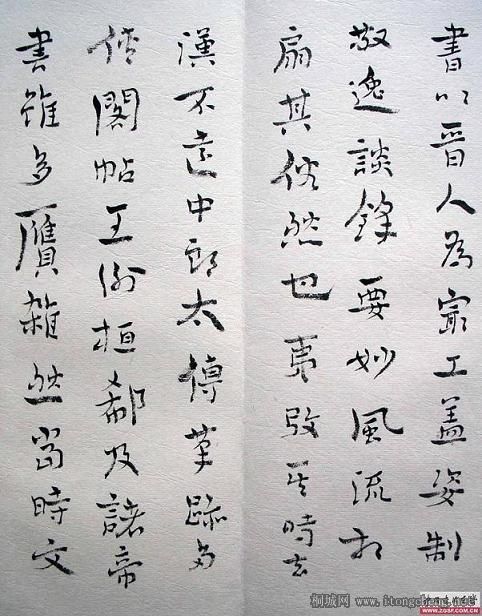 書以晉人為最工蓋姿制
散逸談鋒要妙風流相
扇其俗然也夷攷其時去
漢不遠中郎太傅筆跡多
傳閣帖王謝桓郗及諸帝
書雖多贗雜然當時文
桐城网 itongcheng.net
WWW.ZGSF.COM.CN